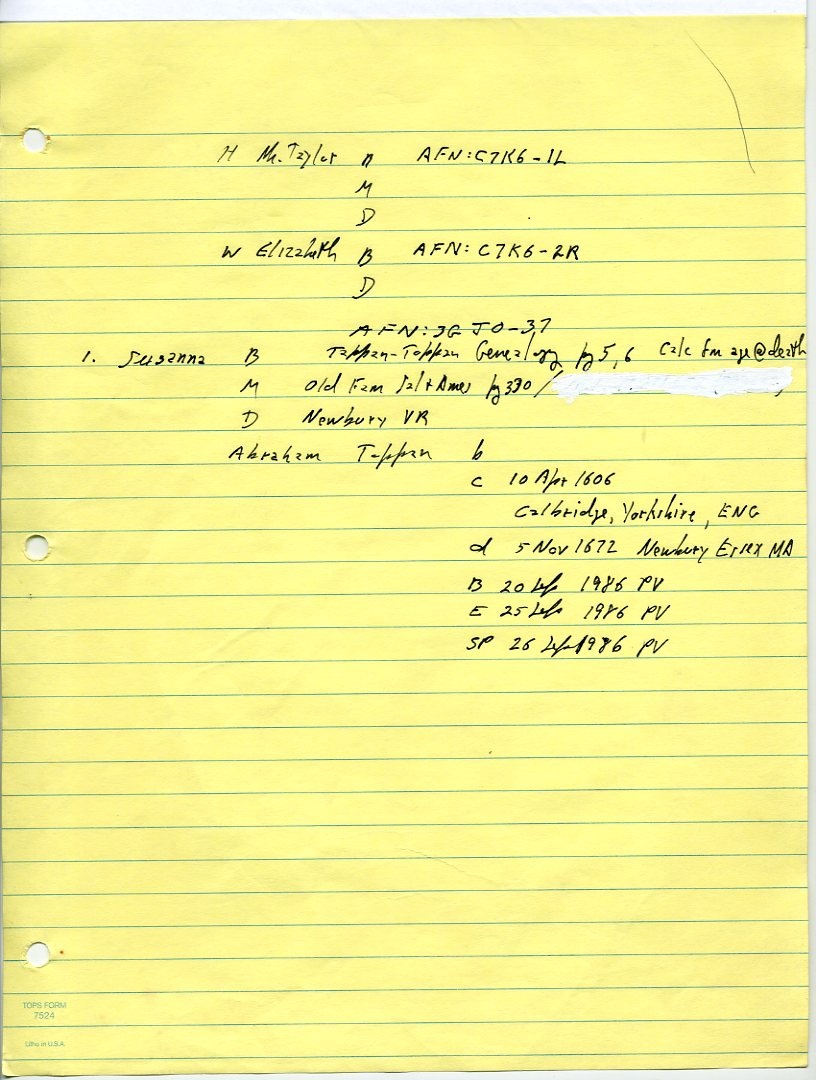 H Mr. Taylor B AFN: C7K6-1L
M
D
W Elizabeth B AFN: C7K6-2R
D
AFN: 3GJ0-37
1. Susanna B Tappan-Toppan Genealogy pg 5, 6 Calc fm age @ death
M Old Fam Sal & Ames pg 330 /
D Newbury VR
Abraham Toppan b
c 10 Apr 1606
Calbridge, Yorkshire, ENG
d 5 Nov 1672 Newbury Essex MA
B 20 Sep 1986 PV
E 25 Sep 1986 PV
SP 26 Sep 1986 PV
TOPS FORM
7524
Litho in U.S.A.